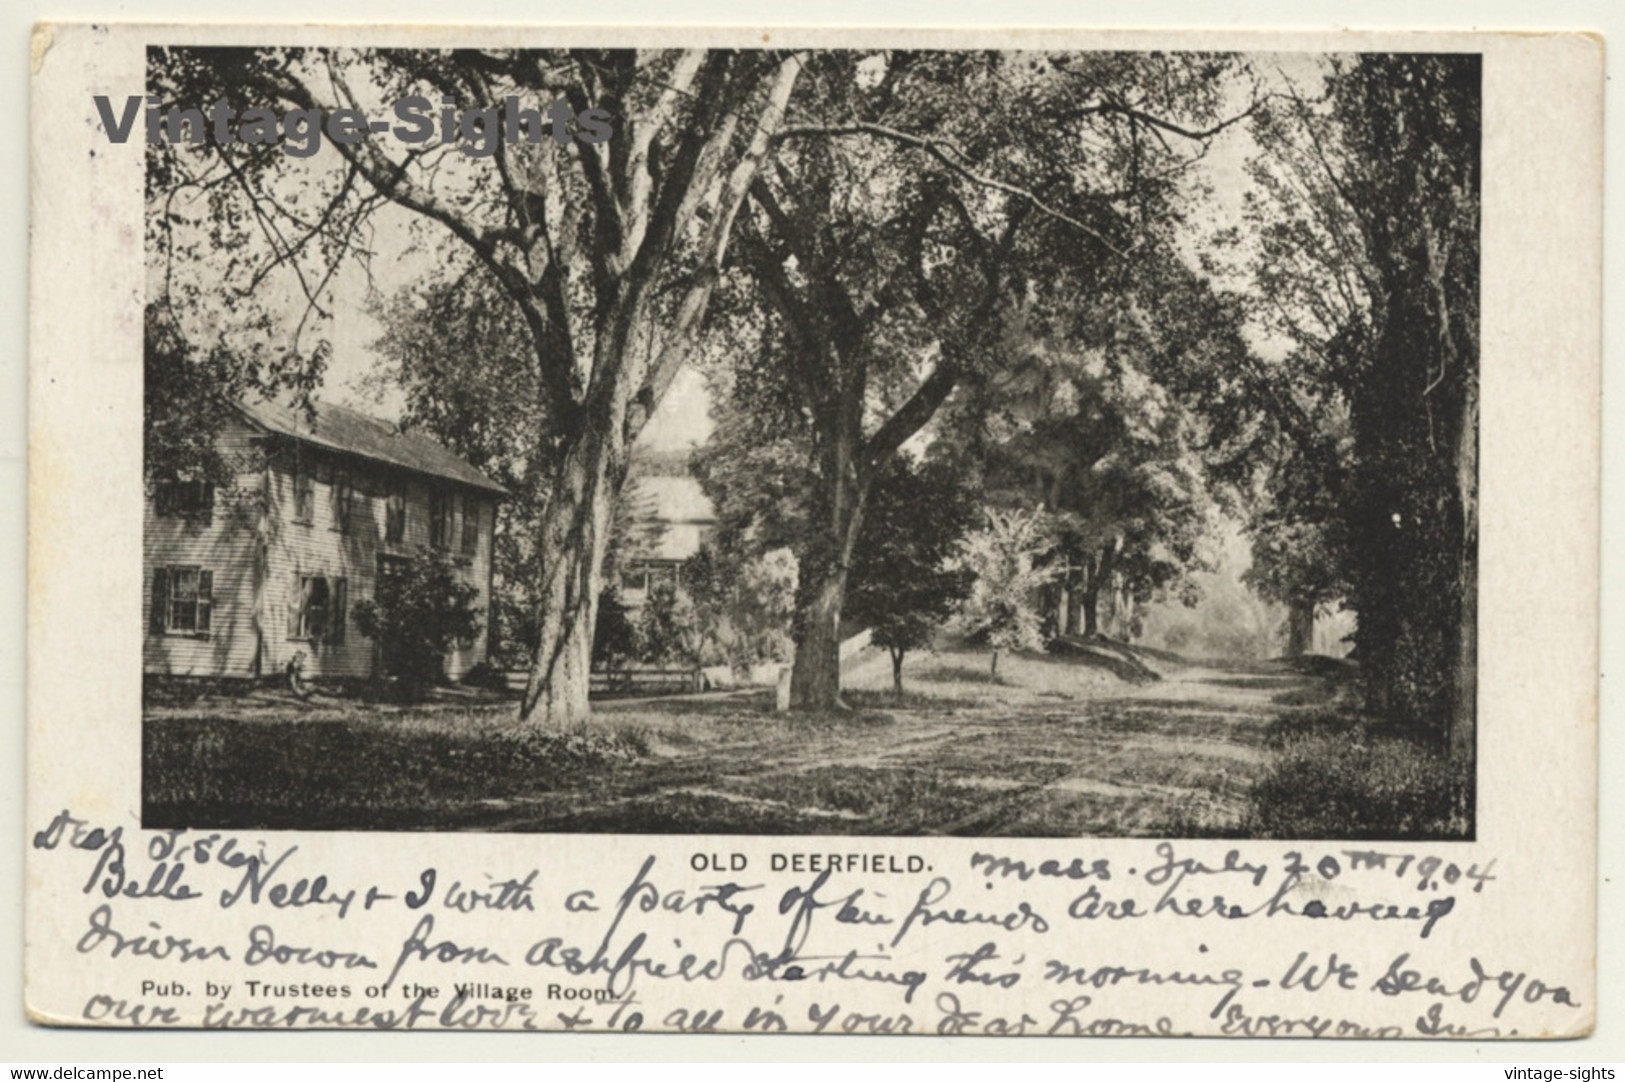 Vintage-Sights
OLD DEERFIELD. Mass. July 20TH 1904
Dear Sister
Belle Nelly & I with a party of friends are here having
driven down from Ashfield starting this morning - We send you
Pub. by Trustees of the Village Room.
our warmest love & to all in your dear home.
delcampe.net
vintage-sights